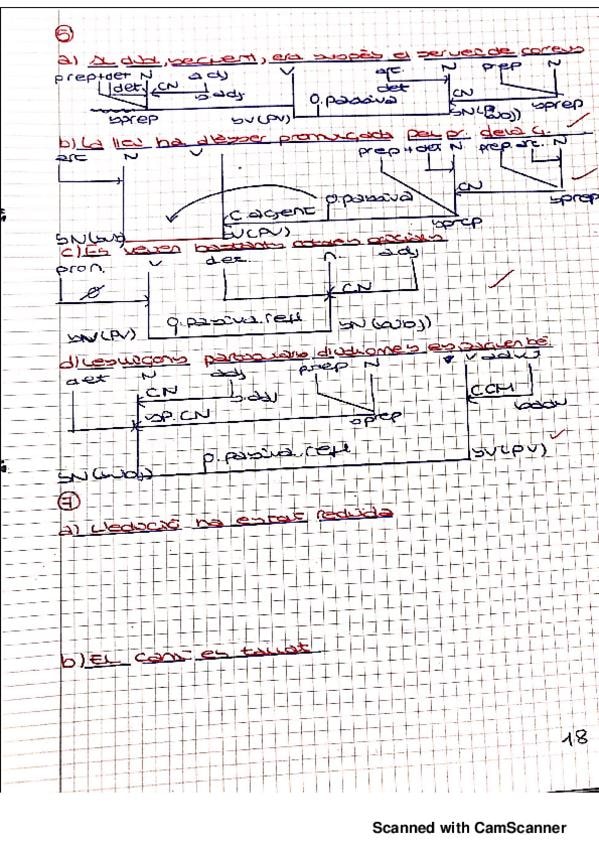 6
a) era suspès el servei de correus
prep+det N adj V art. N prep N
det CN s.adj det CN
O.passiva
sprep SV(PV) SN(subj) sprep
b) La llei ha d'ésser promulgada pel pr. de la
art N V prep+det N prep.art. N
CN
O.passiva
C.agent sprep
SN(subj) SV(PV) sprep
c) Es veuen bastants
pron. V det n. adj
Ø CN
SN(PV) O.passiva.refl SN(subj)
d)
det N adj prep N V adv
CN s.adj CCM
SP.CN sprep sadv
SN(subj) O.passiva.refl SV(PV)
7
a) L'edició ha estat reduïda
b) El camí és tallat
18
Scanned with CamScanner